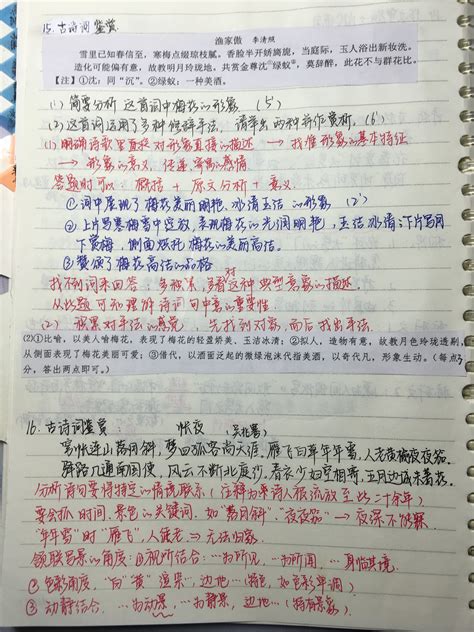 15. 古诗词鉴赏
渔家傲 李清照
雪里已知春信至，寒梅点缀琼枝腻。香脸半开娇旖旎，当庭际，玉人浴出新妆洗。
造化可能偏有意，故教明月玲珑地。共赏金尊沈①绿蚁②，莫辞醉，此花不与群花比。
【注】①沈：同“沉”。②绿蚁：一种美酒。
(1) 简要分析这首词中梅花的形象。(5')
(2) 这首词运用了多种修辞手法，请举出两种并作赏析。(6')
(1) 明确诗歌里直接对形象直接的描述 → 找准形象的基本特征
→ 形象的意义，传递、寄寓的感情
答题时可以 概括 + 原文分析 + 意义
①词中展现了梅花美丽明艳、冰清玉洁的形象 (2')
②上片写寒梅雪中绽放，表现梅花的光润明艳，玉洁冰清；下片写月
下赏梅，侧面烘托梅花的美丽高洁。
③赞颂了梅花高洁的品格
找不到词来回答，多积累，多看对这种典型意象的描述。
从此题可知理解诗词句中意的重要性
(2) 积累对手法的感觉，先找到对象，而后找出手法。
(2)①比喻，以美人喻梅花，表现了梅花的轻盈娇美、玉洁冰清；②拟人，造物有意，故教月色玲珑透剔，
从侧面表现了梅花美丽可爱；③借代，以酒面泛起的微绿泡沫代指美酒，以奇代凡，形象生动。（每点3
分，答出两点即可。）
16. 古诗词鉴赏： 帐夜 (吴兆骞)
穹帐连山落月斜，梦回孤客尚天涯。雁飞白草年年雪，人老黄榆夜夜笳。
驿路几通南国使，风云不断北庭沙。春衣少妇空相寄，五月边城未著花。
分析诗句要将特定的情境联系（注释为本诗人被流放至此二十余年）
要会抓时间、景色的关键词。如“落月斜”、“夜夜笳” → 夜深不能寐
“年年雪”时“雁飞”，人徒老 → 无法归家
①色彩角度，“白”“黄”渲染
③动静结合，…为动景，…为静景，边地…（特有景象）